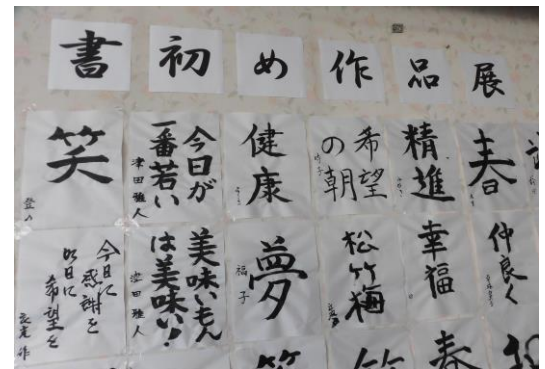 書初め作品展
笑
今日が
一番若い
津田雅人
健康
希望
の朝
精進
春
今日に
感謝を
明日に
希望を
美味いもん
は美味い!
津田雅人
夢
福子
松竹梅
幸福
仲良く
笑
竹
春